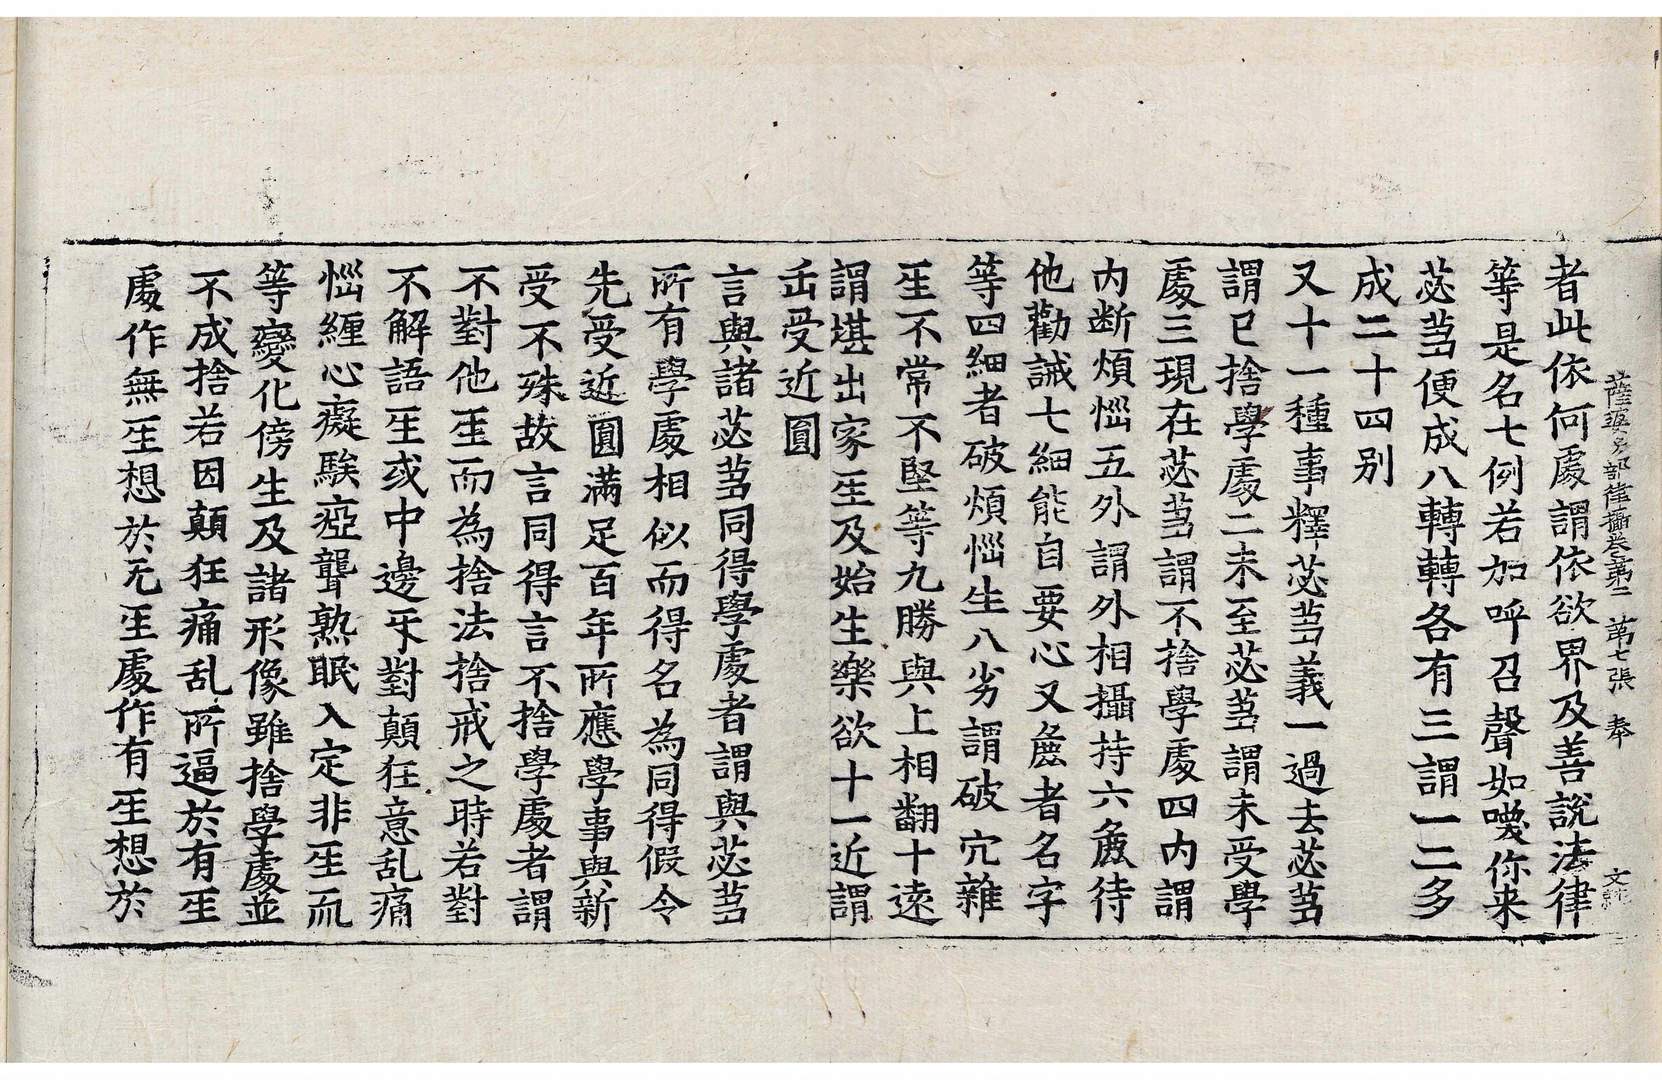 薩婆多部律攝卷第二　第七張　奉
者此依何處謂依欲界及善說法律
等是名七例若加呼召聲如喚你来
苾蒭便成八轉轉各有三謂一二多
成二十四別
又十一種事釋苾蒭義一過去苾蒭
謂已捨學處二未至苾蒭謂未受學
處三現在苾蒭謂不捨學處四内謂
内断煩惱五外謂外相攝持六麁待
他勸誡七細能自要心又麁者名字
等四細者破煩惱生八劣謂破穴雜
𤯔不常不堅等九勝與上相翻十遠
謂堪出家𤯔及始生樂欲十一近謂
缶受近圎
言與諸苾蒭同得學處者謂與苾蒭
所有學處相似而得名為同得假令
先受近圎滿足百年所應學事與新
受不殊故言同得言不捨學處者謂
不對他𤯔而為捨法捨戒之時若對
不解語𤯔或中邊㸦對顛狂意乱痛
惱纏心癡騃瘂聾熟眠入定非𤯔而
等變化傍生及諸形像雖捨學處並
不成捨若因顛狂痛乱所逼於有𤯔
處作無𤯔想於无𤯔處作有𤯔想於